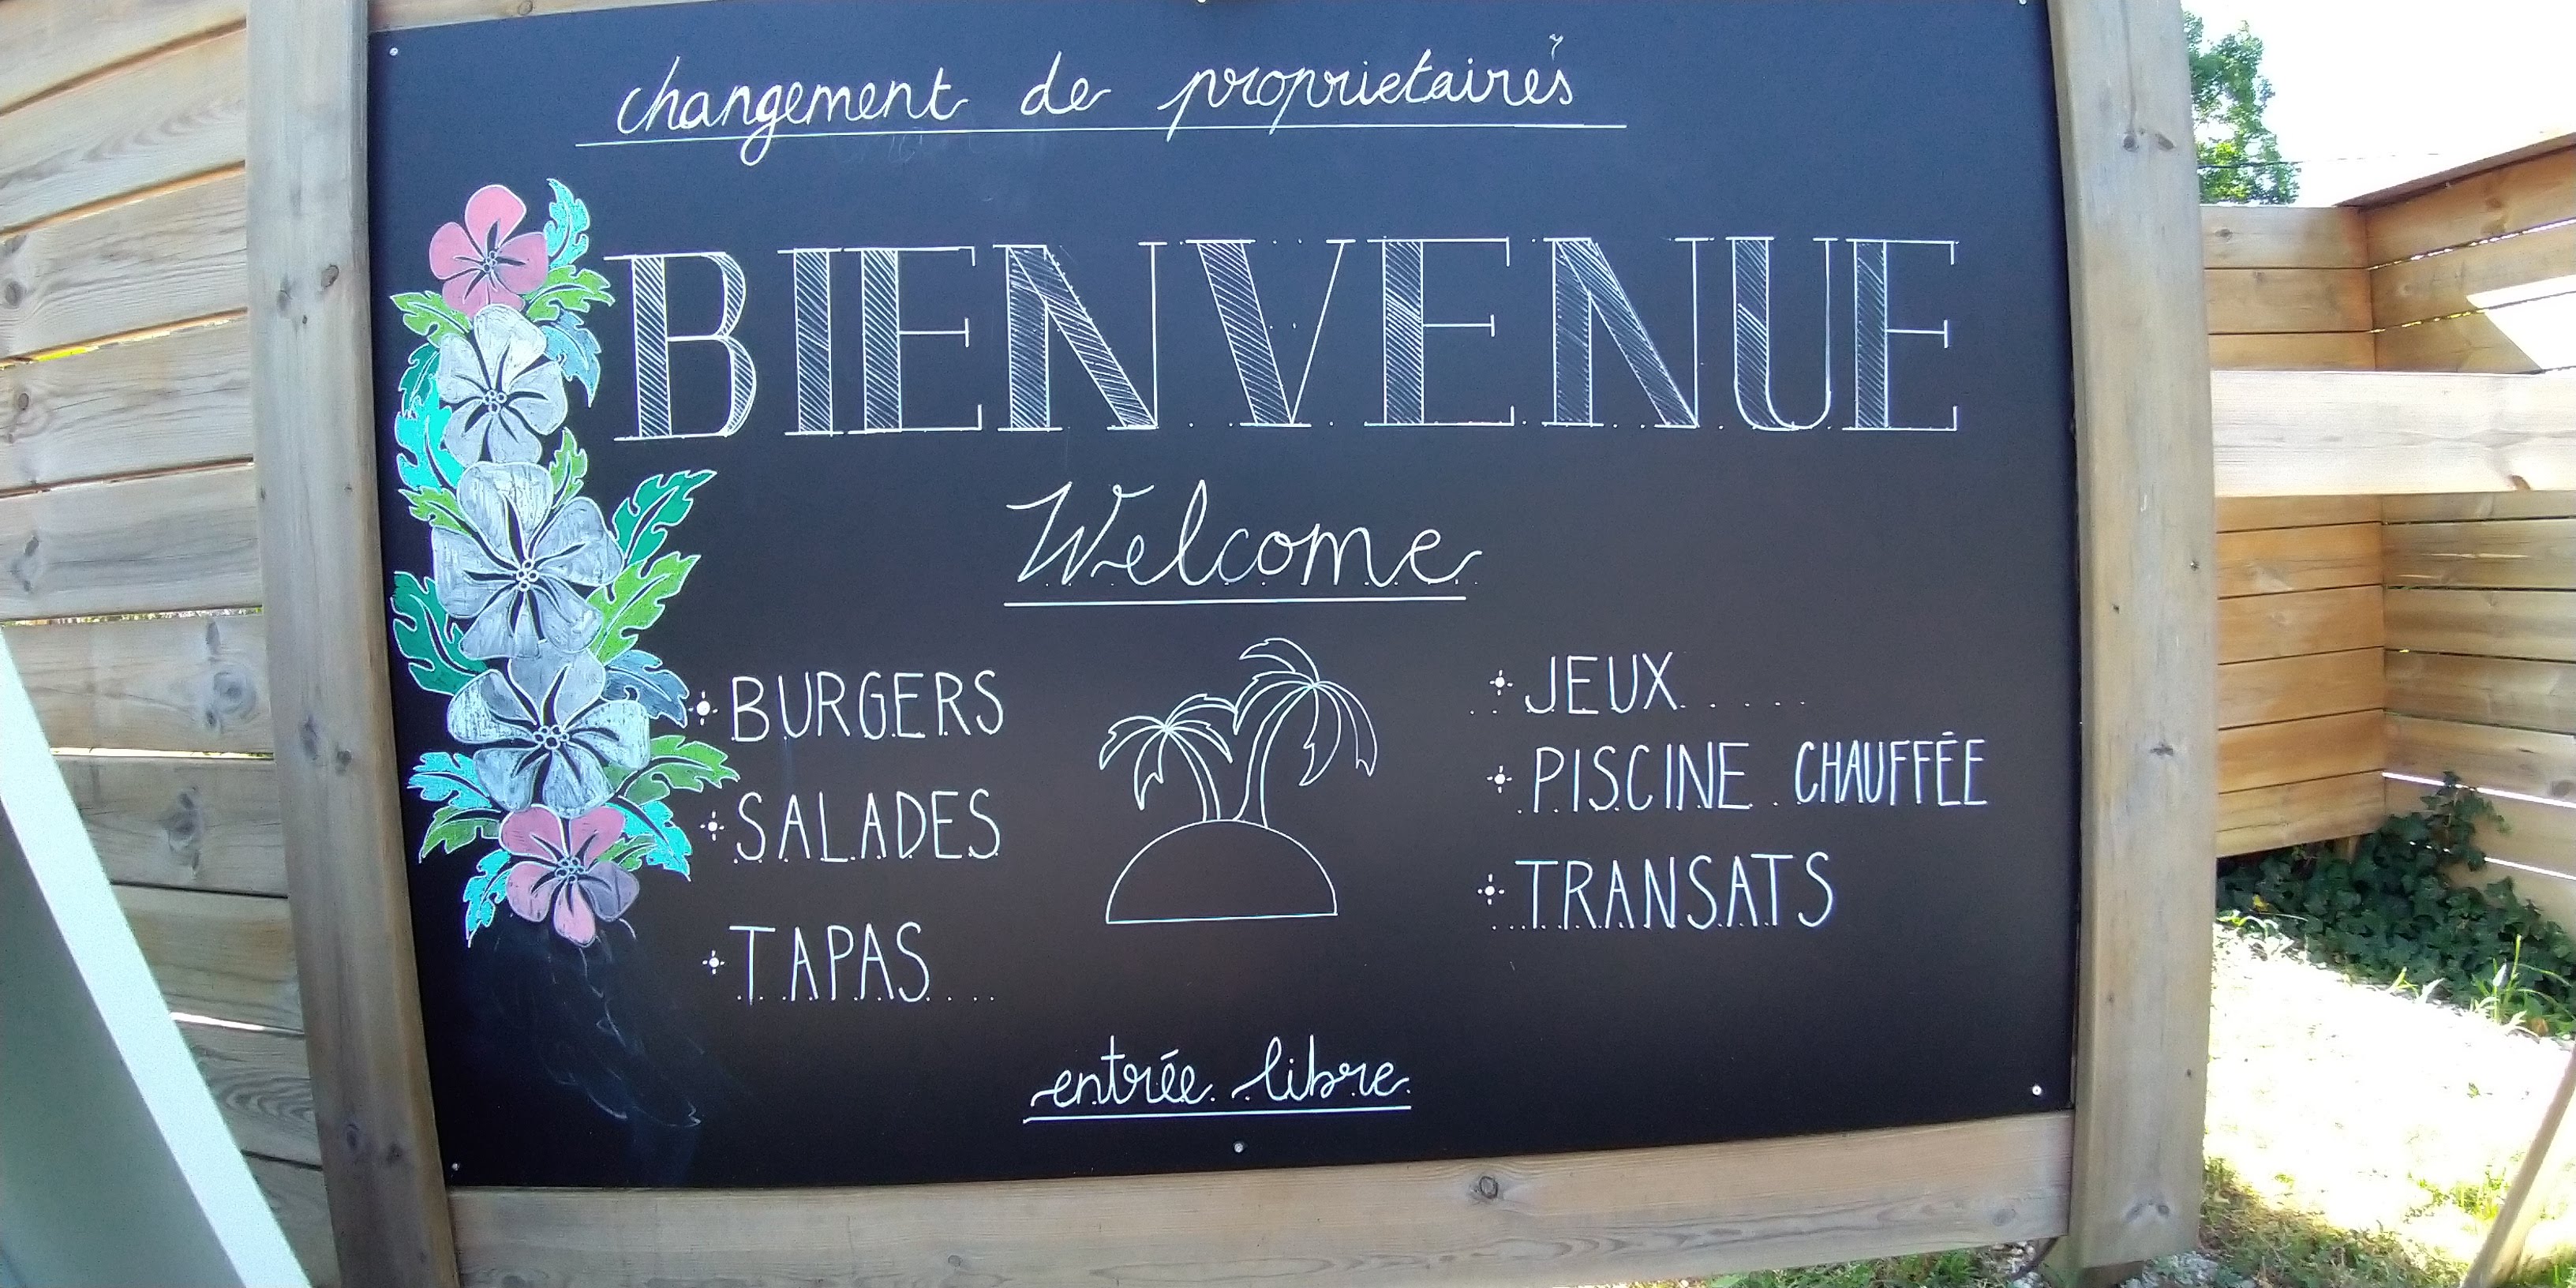 changement de proprietaires
BIENVENUE
Welcome
BURGERS
SALADES
TAPAS....
JEUX.....
PISCINE CHAUFFÉE
TRANSATS
entrée libre